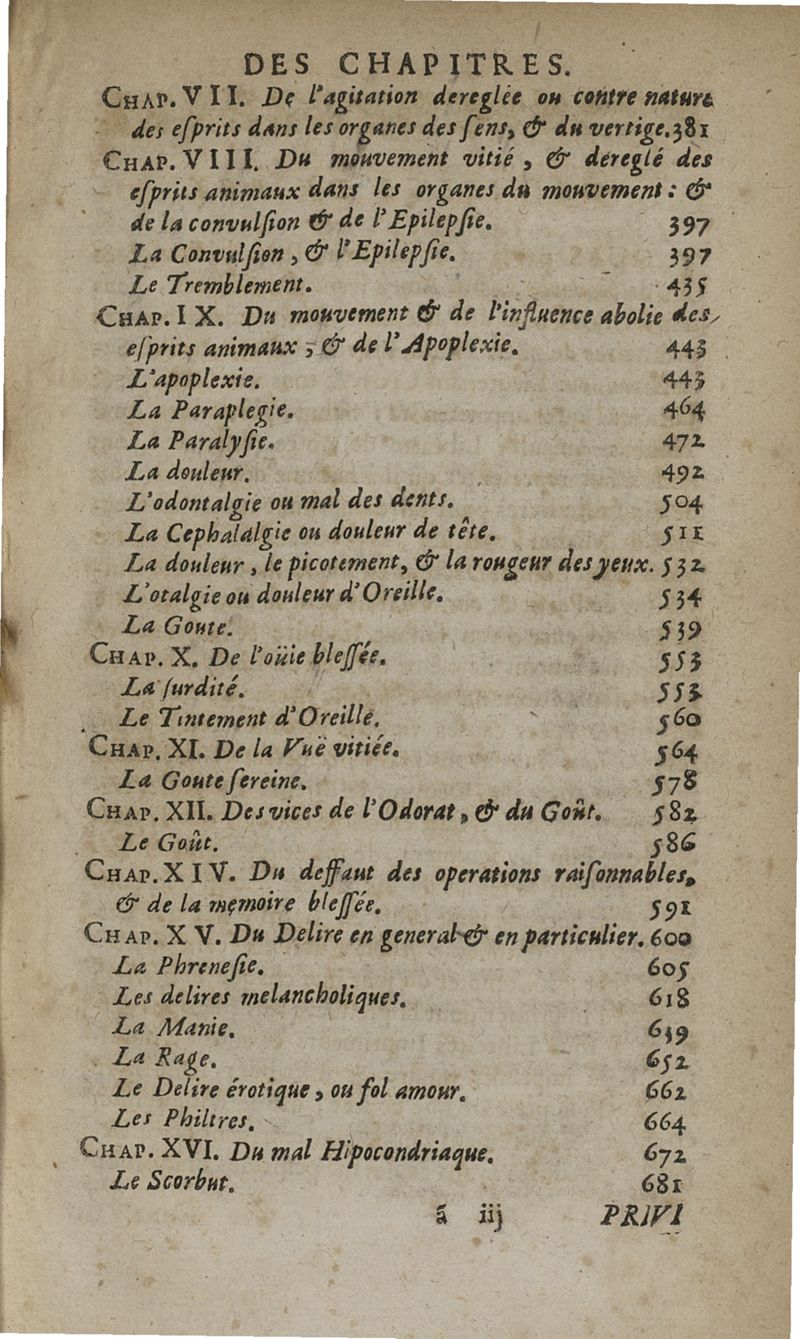 DES CHAPITRES.
CHAP. VII. De l'agitation dereglée ou contre nature
des eſprits dans les organes des ſens, & du vertige. 381
CHAP. VIII. Du mouvement vitié, & dereglé des
eſprits animaux dans les organes du mouvement : &
de la convulſion & de l'Epilepſie. 397
La Convulſion, & l'Epilepſie. 397
Le Tremblement. 435
CHAP. IX. Du mouvement & de l'influence abolie des
eſprits animaux ; & de l'Apoplexie. 443
L'apoplexie. 443
La Paraplegie. 464
La Paralyſie. 472
La douleur. 492
L'odontalgie ou mal des dents. 504
La Cephalalgie ou douleur de tête. 511
La douleur, le picotement, & la rougeur des yeux. 532
L'otalgie ou douleur d'Oreille. 534
La Goute. 539
CHAP. X. De l'oüie bleſſée. 553
La ſurdité. 553
Le Tintement d'Oreille. 560
CHAP. XI. De la Vuë vitiée. 564
La Goute ſereine. 578
CHAP. XII. Des vices de l'Odorat, & du Goût. 582
Le Goût. 586
CHAP. XIV. Du deffaut des operations raiſonnables,
& de la memoire bleſſée. 591
CHAP. XV. Du Delire en general & en particulier. 600
La Phreneſie. 605
Les delires melancholiques. 618
La Manie. 639
La Rage. 652
Le Delire érotique, ou fol amour. 662
Les Philtres. 664
CHAP. XVI. Du mal Hipocondriaque. 672
Le Scorbut. 681
ã iij PRIVI